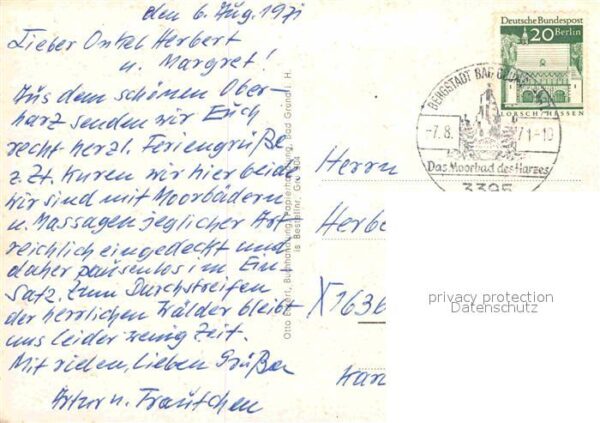 den 6. Aug. 1971
Lieber Onkel Herbert
u. Margret!
Aus dem schönen Ober-
harz senden wir Euch
recht herzl. Feriengrüße
z. Zt. Kuren wir hier beide
wir sind mit Moorbädern
u. Massagen jeglicher Art
reichlich eingedeckt und
daher pausenlos im Ein-
satz. Zum Durchstreifen
der herrlichen Wälder bleibt
uns leider wenig Zeit.
Mit vielen, lieben Grüßen
Artur u. Trautchen
Buchhandlung, Papierhandlung, Bad Grund i. H.
Bestellnr.
Deutsche Bundespost
20 Berlin
LORSCH/HESSEN
BERGSTADT BAD
-7.8. 71-10
Das Moorbad des Harzes
3395
Herrn
Herbe
X1636
privacy protection
Datenschutz